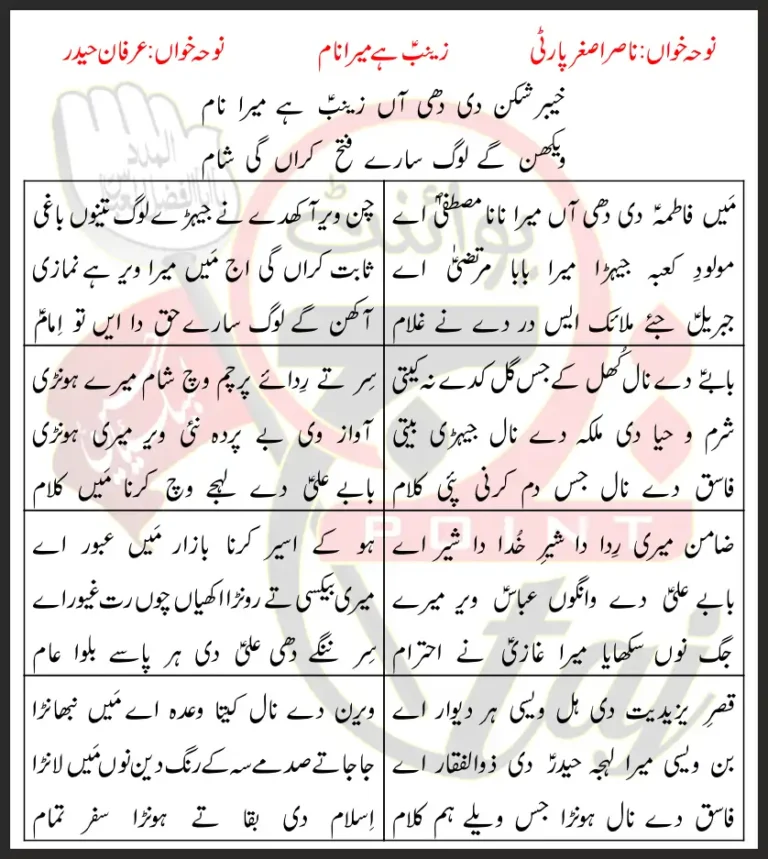 نوحہ خواں: ناصر اصغر پارٹی
زینبؑ ہے میرا نام
نوحہ خواں: عرفان حیدر
خیبر شکن دی دھی آں زینبؑ ہے میرا نام
ویکھن گے لوگ سارے فتح کراں گی شام
مَیں فاطمہؑ دی دھی آں میرا نانا مصطفیٰؐ اے
مولودِ کعبہ جیہڑا میرا بابا مرتضیٰؑ اے
جبریلؑ جئے ملائک ایس در دے نے غلام
چن ویر آکھدے نے جیہڑے لوگ تینوں باغی
ثابت کراں گی اج مَیں میرا ویر ہے نمازی
آکھن گے لوگ سارے حق دا ایں تو اِمامؑ
بابےؑ دے نال کُھل کے جس گل کدے نہ کیتی
شرم و حیا دی ملکہ دے نال جیہڑی بیتی
فاسق دے نال جس دم کرنی پئی کلام
سِر تے رِدائے پرچم وچ شام میرے ہونڑی
آواز وی بے پردہ نئی ویر میری ہونڑی
بابے علیؑ دے لہجے وچ کرنا مَیں کلام
ضامن میری رِدا دا شیرِ خُدا دا شیر اے
بابے علیؑ دے وانگوں عباسؑ ویر میرے
جگ نوں سکھایا میرا غازیؑ نے احترام
ہو کے اسیر کرنا بازار مَیں عبور اے
میری بیکسی تے رونڑا اکھیاں چوں رت غیور اے
سِر ننگے دھی علیؑ دی ہر پاسے بلوا عام
قصرِ یزیدیت دی ہل ویسی ہر دیوار اے
بن ویسی میرا لہجہ حیدرؑ دی ذوالفقار اے
فاسق دے نال ہونڑا جس ویلے ہم کلام
ویرن دے نال کیتا وعدہ اے مَیں نبھانڑا
جا جا تے صدمے سہ کے رنگ دین نوں مَیں لانڑا
اِسلام دی بقا تے ہونڑا سفر تمام
پوائنٹ
POINT
taj